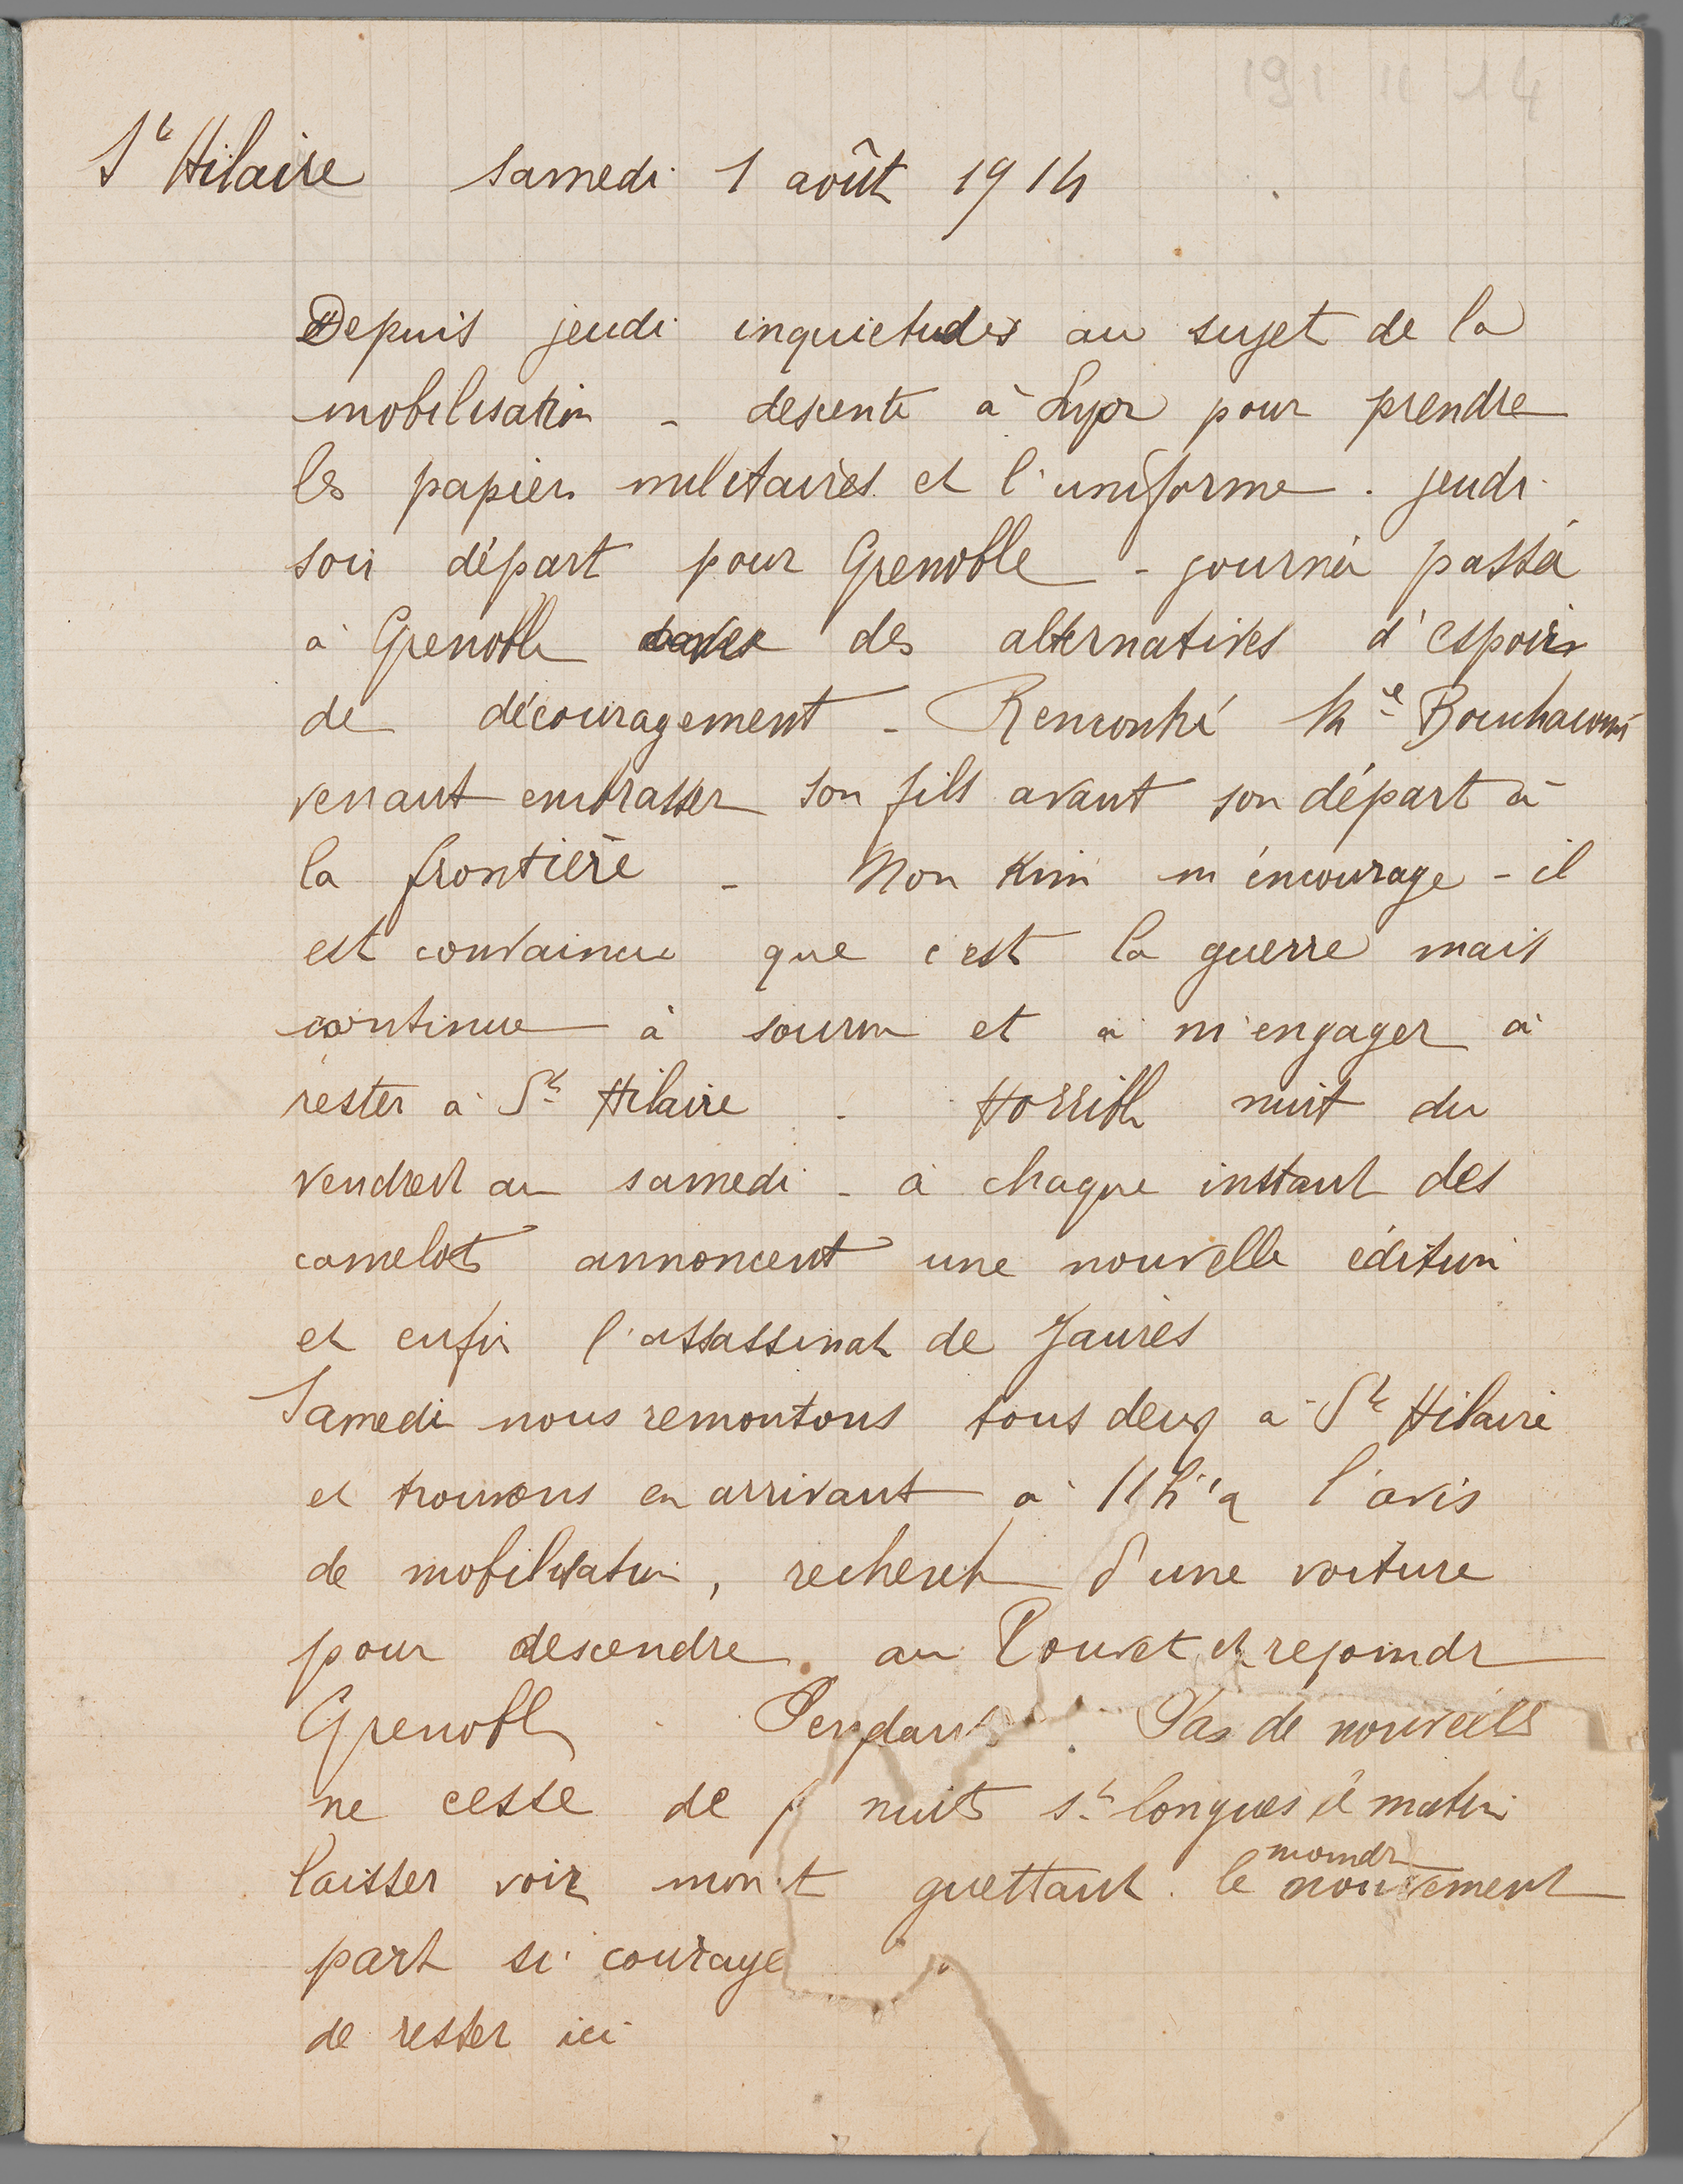 191 11 14
St Hilaire samedi 1 août 1914
Depuis jeudi inquietudes au sujet de la
mobilisation - descente à Lyon pour prendre
les papiers militaires et l'uniforme. jeudi
soir départ pour Grenoble - journée passée
à Grenoble avec des alternatives d'espoir
de découragement - Rencontré Me
venant embrasser son fils avant son départ à
la frontière - Mon m'encourage - il
est convaincu que c'est la guerre mais
continue à sourire et à m'engager à
rester à St Hilaire. Horrible nuit du
vendredi au samedi - à chaque instant des
camelots annoncent une nouvelle édition
et enfin l'assassinat de Jaurès
Samedi nous remontons tous deux à St Hilaire
et trouvons en arrivant à l'avis
de mobilisation, recherche d'une voiture
pour descendre au Touvet et rejoindre
Grenoble. Pendant Pas de nouvelles
ne cesse de nuits st longues matin
laisser voir mon t guettant le moindre mouvement
part si courage
de rester ici